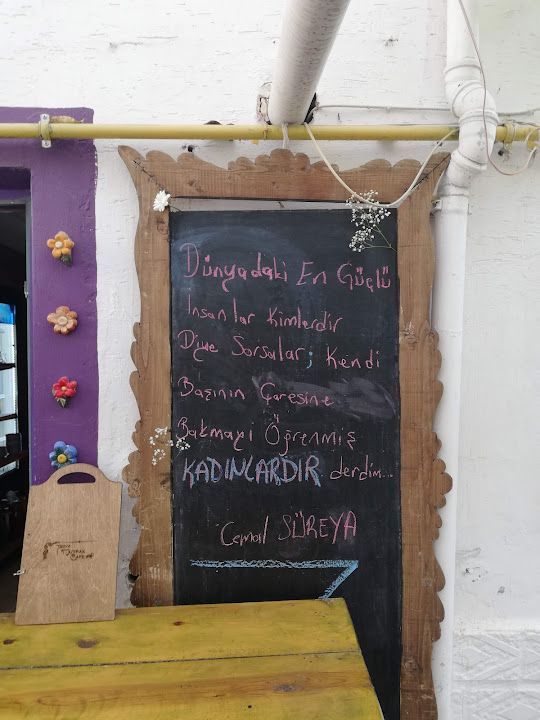 Dünyadaki En Güçlü
İnsanlar Kimlerdir
Diye Sorsalar; Kendi
Başının Çaresine
Bakmayı Öğrenmiş
KADINLARDIR derdim...
Cemal SÜREYA